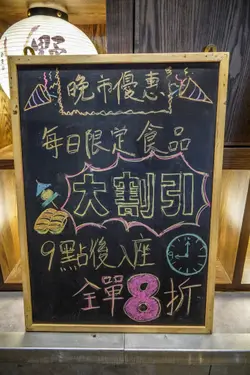 晚市優惠
每日限定食品
大割引
9點後入座
全單8折